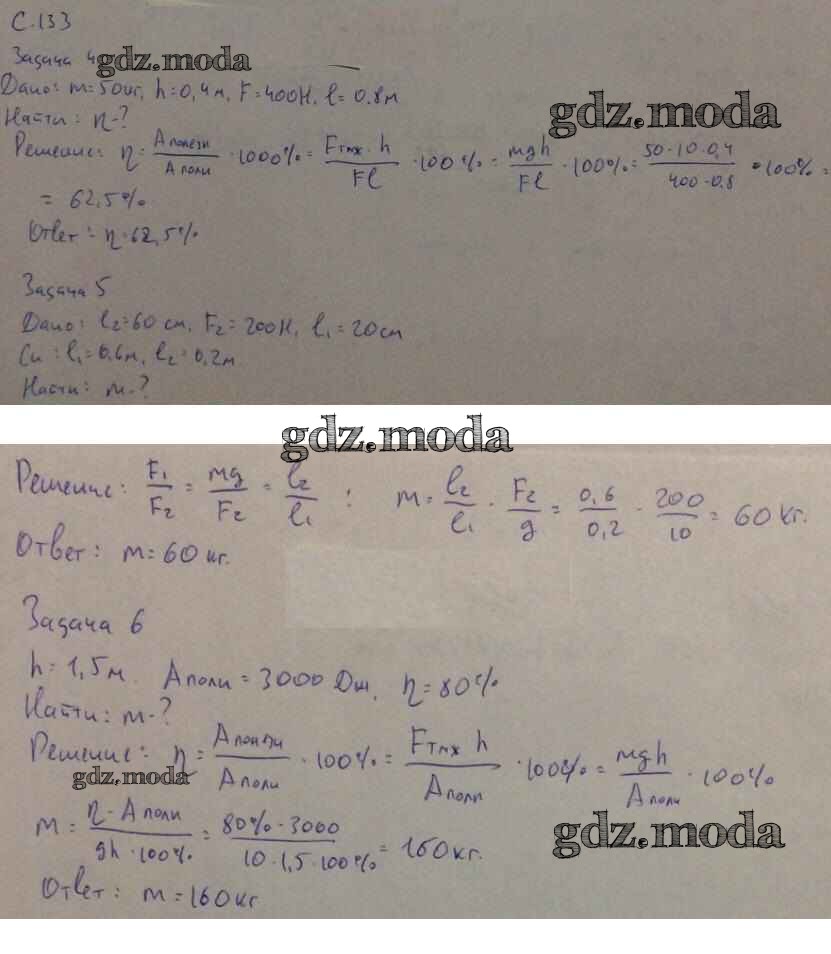 С.133
Задача 4
gdz.moda
Дано: m=50кг, h=0,4м, F=400Н, l=0.8м
gdz.moda
Найти: η-?
Решение: η= Аполезн/Аполн · 1000% = Fтяж · h/Fl · 100% = mgh/Fl · 100% = 50·10·0,4/400·0,8 · 100% =
= 62,5%
Ответ: η=62,5%
Задача 5
Дано: l2=60 см, F2=200Н, l1=20см
Си: l1=0.6м, l2=0,2м
Найти: m-?
gdz.moda
Решение: F1/F2 = mg/F2 = l2/l1 : m= l2/l1 · F2/g = 0,6/0,2 · 200/10 = 60 кг.
Ответ: m=60 кг.
Задача 6
h=1,5м. Аполн = 3000 Дж, η=80%
Найти: m-?
Решение: η= Аполезн/Аполн · 100% = Fтяж h/Аполн · 100% = mgh/Аполн · 100%
gdz.moda
m= η·Аполн/gh·100% = 80%·3000/10·1,5·100% = 160кг.
gdz.moda
Ответ: m=160кг